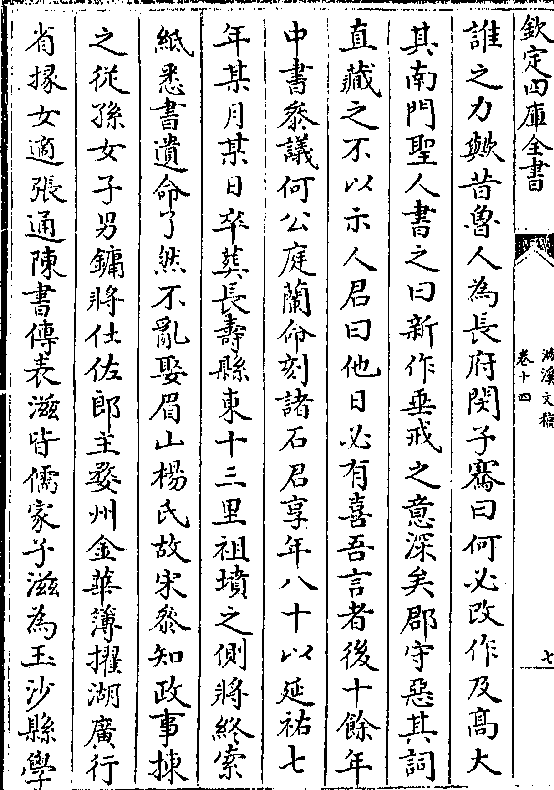 欽定四庫全書
滋溪文稿
卷十四
七
誰之力歟昔魯人為長府閔子騫曰何必改作及髙大
其南門聖人書之曰新作垂戒之意深矣郡守惡其詞
直藏之不以示人君曰他日必有喜吾言者後十餘年
中書叅議何公庭蘭命刻諸石君享年八十以延祐七
年某月某日卒葬長壽縣東十三里祖墳之側將終索
紙悉書遺命了然不亂娶眉山楊氏故宋叅知政事棟
之從孫女子男鏞將仕佐郎主婺州金華簿擢湖廣行
省掾女適張通陳書傳表滋皆儒家子滋為玉沙縣學